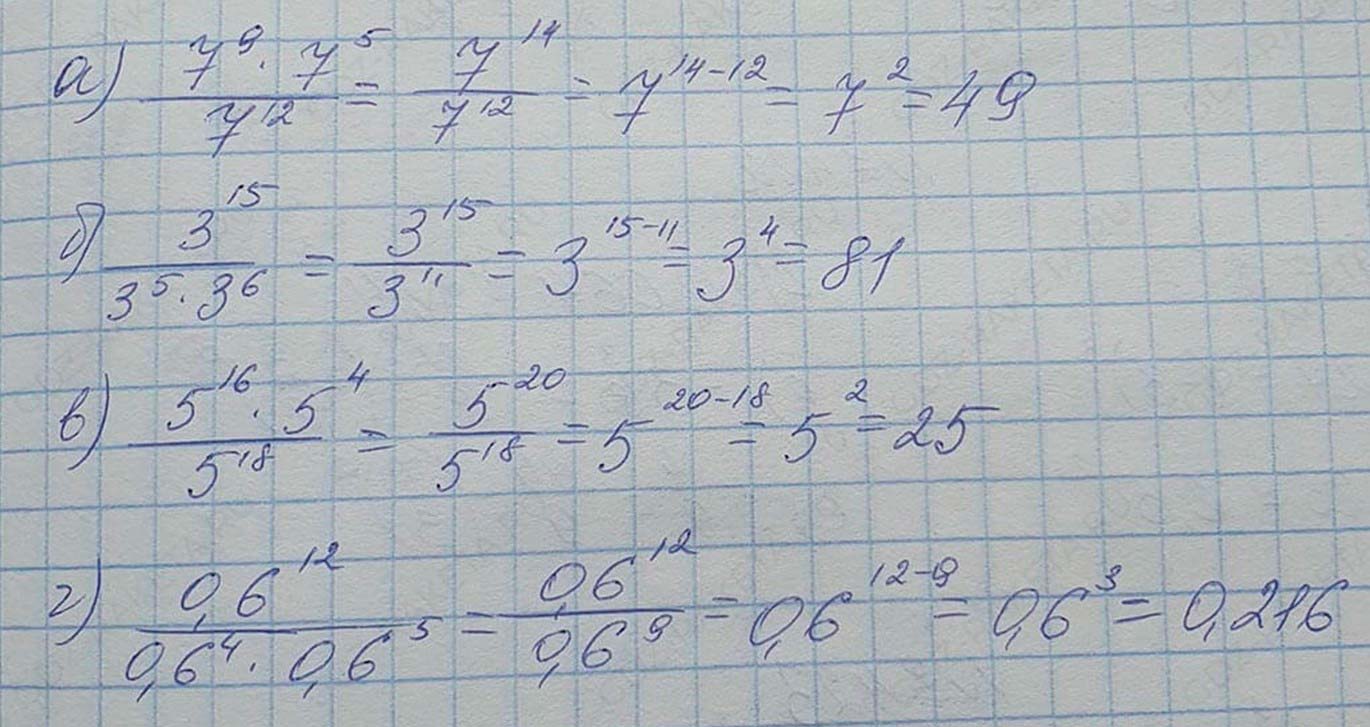 а) 7⁹·7⁵/7¹² = 7¹⁴/7¹² = 7¹⁴⁻¹² = 7² = 49
б) 3¹⁵/3⁵·3⁶ = 3¹⁵/3¹¹ = 3¹⁵⁻¹¹ = 3⁴ = 81
в) 5¹⁶·5⁴/5¹⁸ = 5²⁰/5¹⁸ = 5²⁰⁻¹⁸ = 5² = 25
г) 0,6¹²/0,6⁴·0,6⁵ = 0,6¹²/0,6⁹ = 0,6¹²⁻⁹ = 0,6³ = 0,216